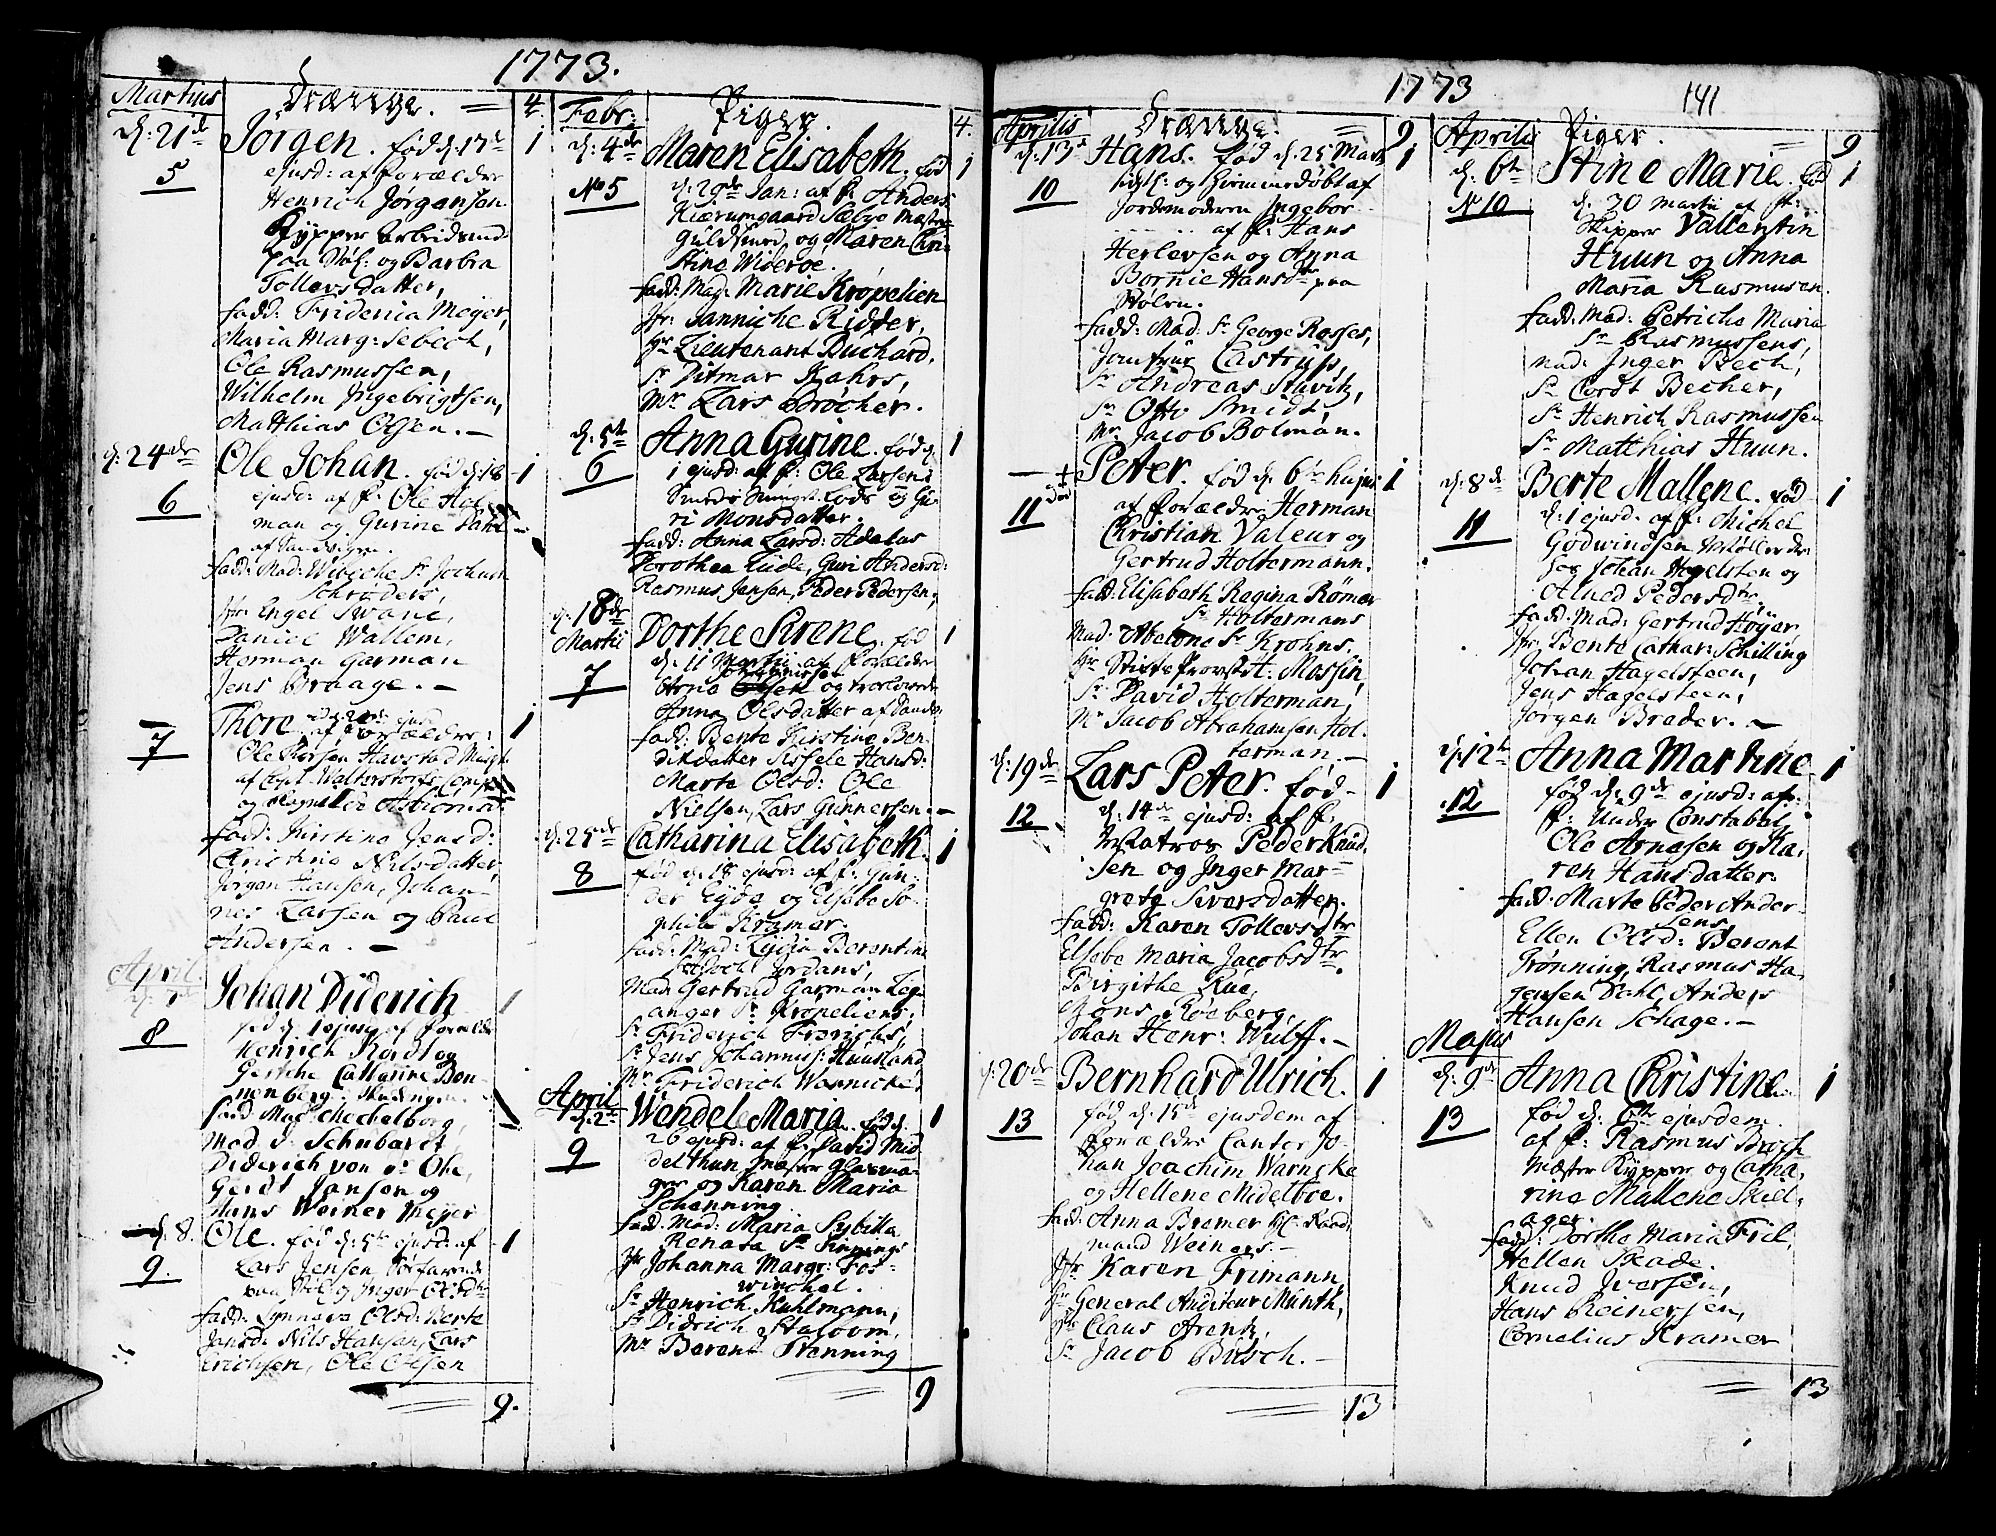 1773.
Martius
Drænge.
4.
d: 21de
Jørgen. fød d: 17de
1
5
ejusd: af Forældre
Henrich Jørgensen
Kypper Arbeidsmd
paa Nøs: og Barbra
Tollevsdatter,
fadd: Friderica Meyer,
Maria Marg: Sebech,
Ole Rasmussen,
Wilhelm Ingebrigtsen,
Matthias Olsen. —
d: 24de
Ole Johan. fød d: 18
1
6
ejusd: af f: Ole
man og Gurine
fadd: Mad: Wibiche Sr Jochum
Schrøders,
Jfr: Engel Svane,
Daniel Wallem,
Herman Garman
Jens Braage. —
Thore
1
7
af Forældre:
Ole Thorsen Havstad
og Magnilde
fadd: Kirstine Jensd:
Christine Nilsdatter,
Jørgen Hansen, Johan-
nes Larsen og Paul
Andersen. —
April
Johan Diderich
1
8
fød d: 1 ejusd: af Forældre
Henrich Kordt og
Gesche Catharine Bon-
nenberg
fadd: Mad: Meckelborg,
Mad: Sr Schubardt
Diderich von der Ohe,
Gerdt Jansen og
Hans Weiner Meyer
d: 8.
Ole. fød d: 5te ejusd: af
1
9.
Lars Jensen
paa Nøs: og Inger Olsdtr
fadd: Synneva Olsd: Berte
Jansd: Nils Hansen, Lars
Erichsen, Ole Olsen
9.
Febr:
Piger.
4.
d: 4de
Maren Elisabeth. fød
1
No 5
d: 29de Jan: af f: Anders
Kierumgaard Sælbye Mester
Guldsmed og Maren Chri-
stine Wideroe.
fadd: Mad: Marie Krøpelien
Jfr: Janniche Ridder,
Hr Lieutenant Buchard,
Sr Ditmar Kahrs,
Mr Lars Brøcher.
d: 5te
Anna Gurine. fød d:
1
6
1 ejusd: af f: Ole Larsen
og Gu-
ri Monsdatter
fadd: Anna Larsd: Adalus
Dorothea Lude, Guri Andersd:
Rasmus Jensen, Peder Pedersen,
d: 18de
Martii
Dorthe Sirene. fød
1
7
d: 11 Martii af Forældre
Arne
Anna Olsdatter af
fadd: Bente Kirstine Ben-
dikdatter Sissele Hansd:
Marte Olsd: Ole
Nielsen, Lars Gunnersen. —
d: 25de
Catharina Elisabeth.
1
8
fød d: 18 ejusd: af f: Gun-
der Eyde og Elsebe So-
phia Kramer.
fadd: Mad: Lydia Berentine
Jordans,
Mad: Gertrud Garman Leg-
anger Sr Krøpeliens,
Sr Friderich Frerichs,
Sr Jens Johannes: Huusland
Mr Friderich Warnicke.
April
d: 2de
Wendele Maria. fød d:
1
9
26 ejusd: af f: David Mid
delthun Mester Glasma-
ger og Karen Maria
Schenning
fadd: Mad: Maria Sybilla
Renata Sr Sinnings
Jfr Johanna Margr: Fos-
winchel.
Sr Henrich Kuhlmann,
Sr Didrich Staloom,
Mr Berent Trenning
9
1773
141
Aprilis
Drænge.
9
d: 13de
Hans. fød d: 25 Marti
1
10
hidtil: og Hiemmedøbt af
Jordemoderen Ingebor-
af f: Hans
Herlevsen og Anna
Bornie Hansdtr paa
Stølen.
fadd: Mad: Sr George Rosses,
Jomfrue Castrup,
Sr Andreas Stuvitz,
Sr Otto Smidt,
Mr Jacob Bolman.
+
død
Peter. fød d: 6te hujus
1
11
af Forældre Herman
Christian Valeur og
Gertrud Holtermann.
fadd: Elisabeth Regina Rømer
Sr Holtermans
Mad: Abelone Sr Krohns.
Hr Stifts Provst H: Mossin,
Sr David Holterman,
Mr Jacob Abrahamsen Hol-
terman. —
d: 19de
Lars Peter. fød
1
12
d: 14de ejusd: af f:
Matros Peder Knud
sen og Inger Mar-
grete Siversdatter.
fadd: Karen Tollevsdtr
Elsebe Maria Jacobsdtr
Birgithe Rue,
Mons Røeberg,
Johan Henr: Wulff. —
d: 20de
Bernhard Ulrich.
1
13
fød d: 15de ejusdem af
Forældre Cantor Jo-
han Joachim Warncke
og Hellene Midelboe.
fadd: Anna Bremer Hr: Raad-
mand Weiners. —
Jfr Karen Frimann,
Hr General Auditeur Munth,
Hr Claus Arentz,
Sr Jacob Busch. —
13
Aprilis
Piger.
9
d: 6te
Stine Marie. fød
1
No 10
d: 30 Martii af f:
Skipper Vallentin
Huun og Anna
Maria Rasmusen.
fadd: Mad: Petriche Maria
Sr Rasmussens,
Mad: Inger Bech,
Sr Cordt Becher,
Sr Henrich Rasmussen
Sr Matthias Huun.
d: 8de
Berte Mallene. fød
1
11
d: 1 ejusd: af f: Michel
Godwindsen Møller
hos Johan Hagelsten og
Alned Pedersdtr.
fadd: Mad: Gertrud Høyer
Jfr: Bente Cathar: Schilling
Johan Hagelsteen,
Jens Hagelsteen,
Jørgen Brader. —
d: 12te
Anna Martine
1
12
fød d: 9de ejusd: af
f: Under Constabel
Ole Arnesen og Ka-
ren Hansdatter.
fadd: Marte Peder Ander-
sens
Ellen Olsd: Berent
Trønning, Rasmus Ha-
gensen Dahl, Anders
Hansen Schage. —
Majus
d: 9de
Anna Christine
1
13
fød d: 6te ejusdem.
af f: Rasmus Broch
Mester Kypper og Catha-
rine Mallene Skiel-
ager.
fadd: Dorthe Maria Friil,
Hellen Skade.
Knud Iversen,
Hans Reinersen,
Cornelius Kramer
13